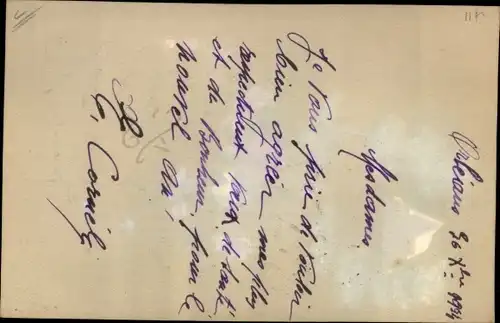 Orléans 26 Xbre 1934
Mesdames
Je vous prie de vouloir
bien agréer mes plus
respectueux vœux de santé
et de Bonheur pour le
nouvel An,